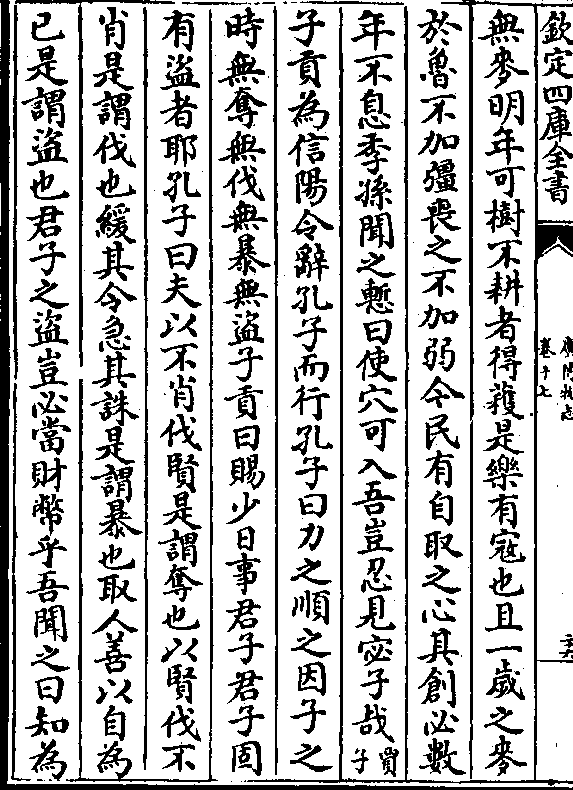 欽定四庫全書
廣博物志
卷十七
無麥明年可樹不耕者得穫是樂有寇也且一歲之麥
於魯不加彊喪之不加弱令民有自取之心其創必數
年不息季孫聞之慙曰使穴可入吾豈忍見宓子哉賈子
子貢為信陽令辭孔子而行孔子曰力之順之因子之
時無奪無伐無暴無盜子貢曰賜少日事君子君子固
有盜者耶孔子曰夫以不肖伐賢是謂奪也以賢伐不
肖是謂伐也緩其令急其誅是謂暴也取人善以自為
已是謂盜也君子之盜豈必當財幣乎吾聞之曰知為